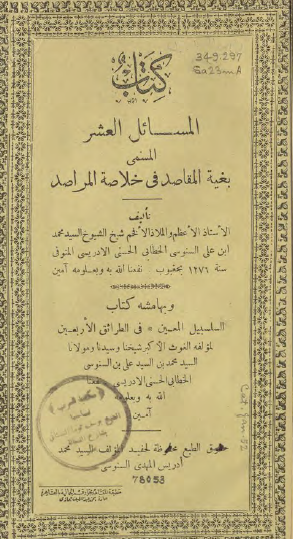 349.297
Sa23mA
كتاب
المســائل العشر
المسمى
بغية المقاصد فى خلاصة المراصد
تأليف
الاستاذ الاعظم والملاذ الافخم شيخ الشيوخ السيد محمد
ابن على السنوسى الخطابى الحسنى الادريسى المتوفى
سنة ١٢٧٦ بجغبوب نفعنا الله به وبعلومه آمين
وبهامشه كتاب
السلسبيل المعين * فى الطرائق الأربعين
لمؤلفه الغوث الاكبر شيخنا وسيدنا ومولانا
السيد محمد بن السيد على بن السنوسى
الخطابى الحسنى الادريسى نفعنا
الله به وبعلومه
آمين
حقوق الطبع محفوظة لحفيد المؤلف السيد محمد
ادريس المهدى السنوسى
78053